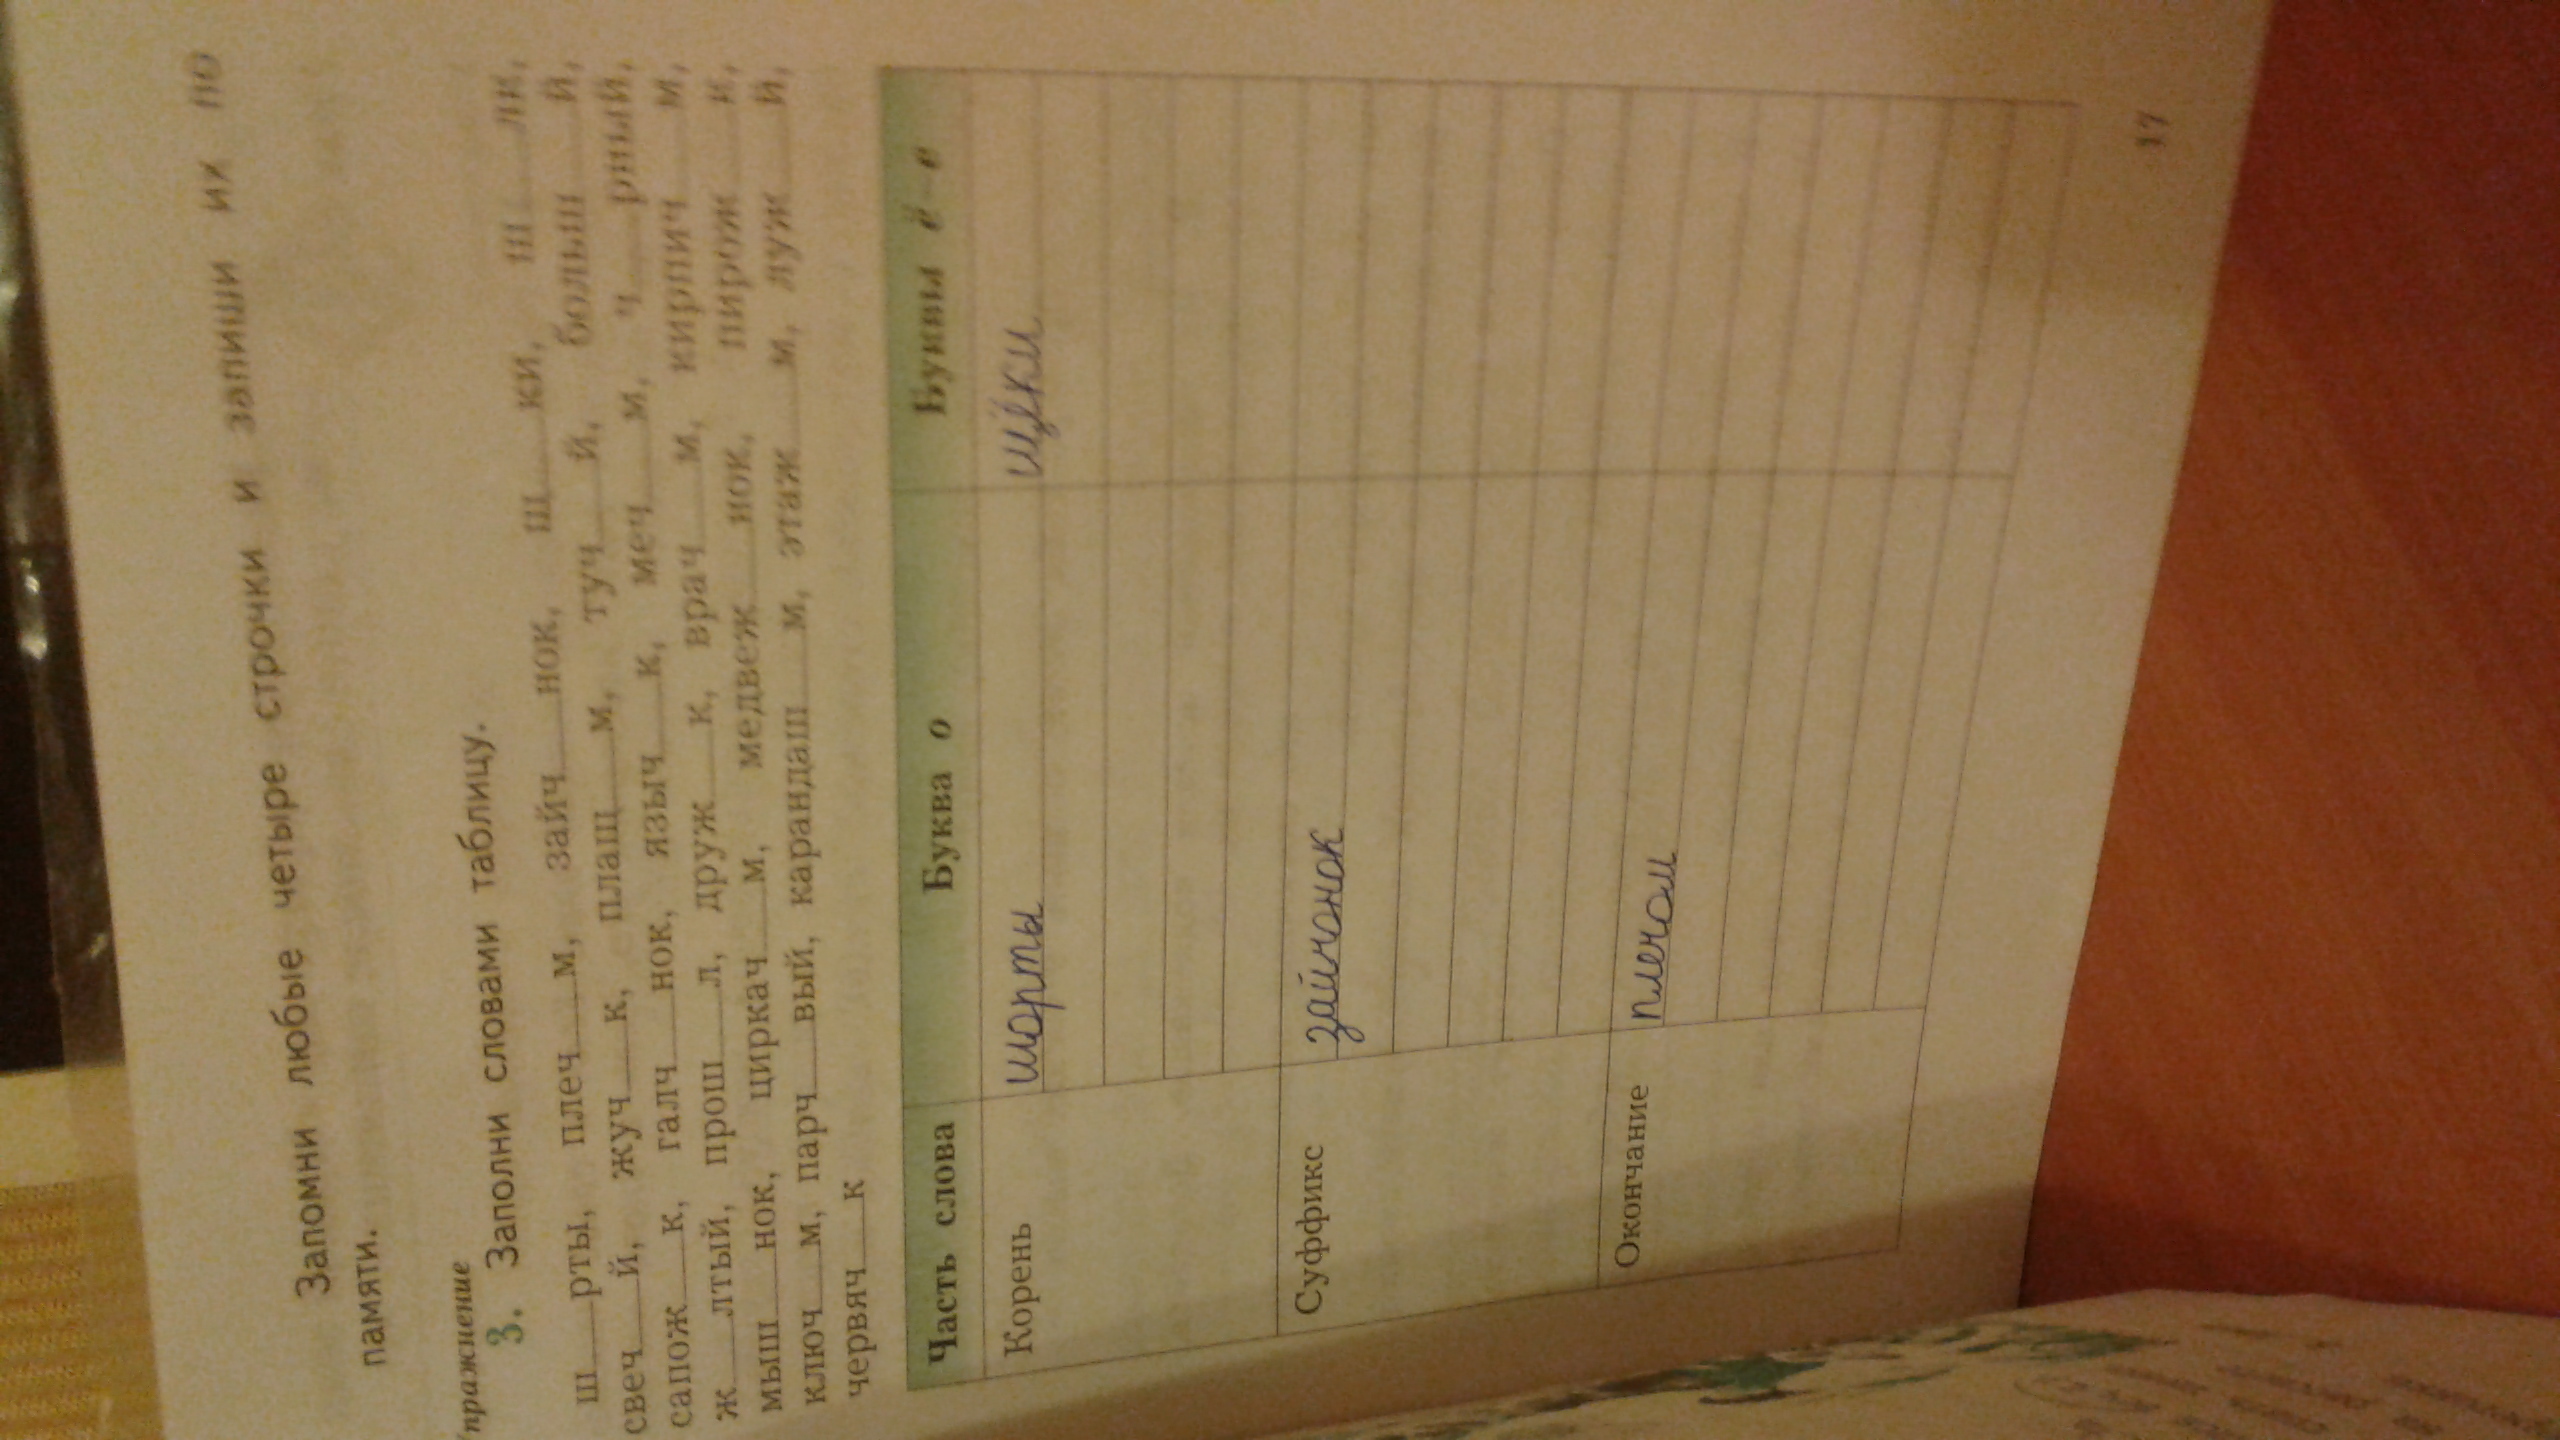 Запомни любые четыре строчки и запиши их по
памяти.
Упражнение
3. Заполни словами таблицу.
ш__рты, плеч__м, зайч__нок, щ__ки, ш__лк,
свеч__й, жуч__к, плащ__м, туч__й, больш__й,
сапож__к, галч__нок, языч__к, меч__м, ч__рный,
ж__лтый, прош__л, друж__к, врач__м, кирпич__м,
мыш__нок, циркач__м, медвеж__нок, пирож__к,
ключ__м, парч__вый, карандаш__м, этаж__м, луж__й,
червяч__к
Часть слова Буква о Буквы ё–е
Корень шорты щёки
Суффикс зайчонок
Окончание плечом
17